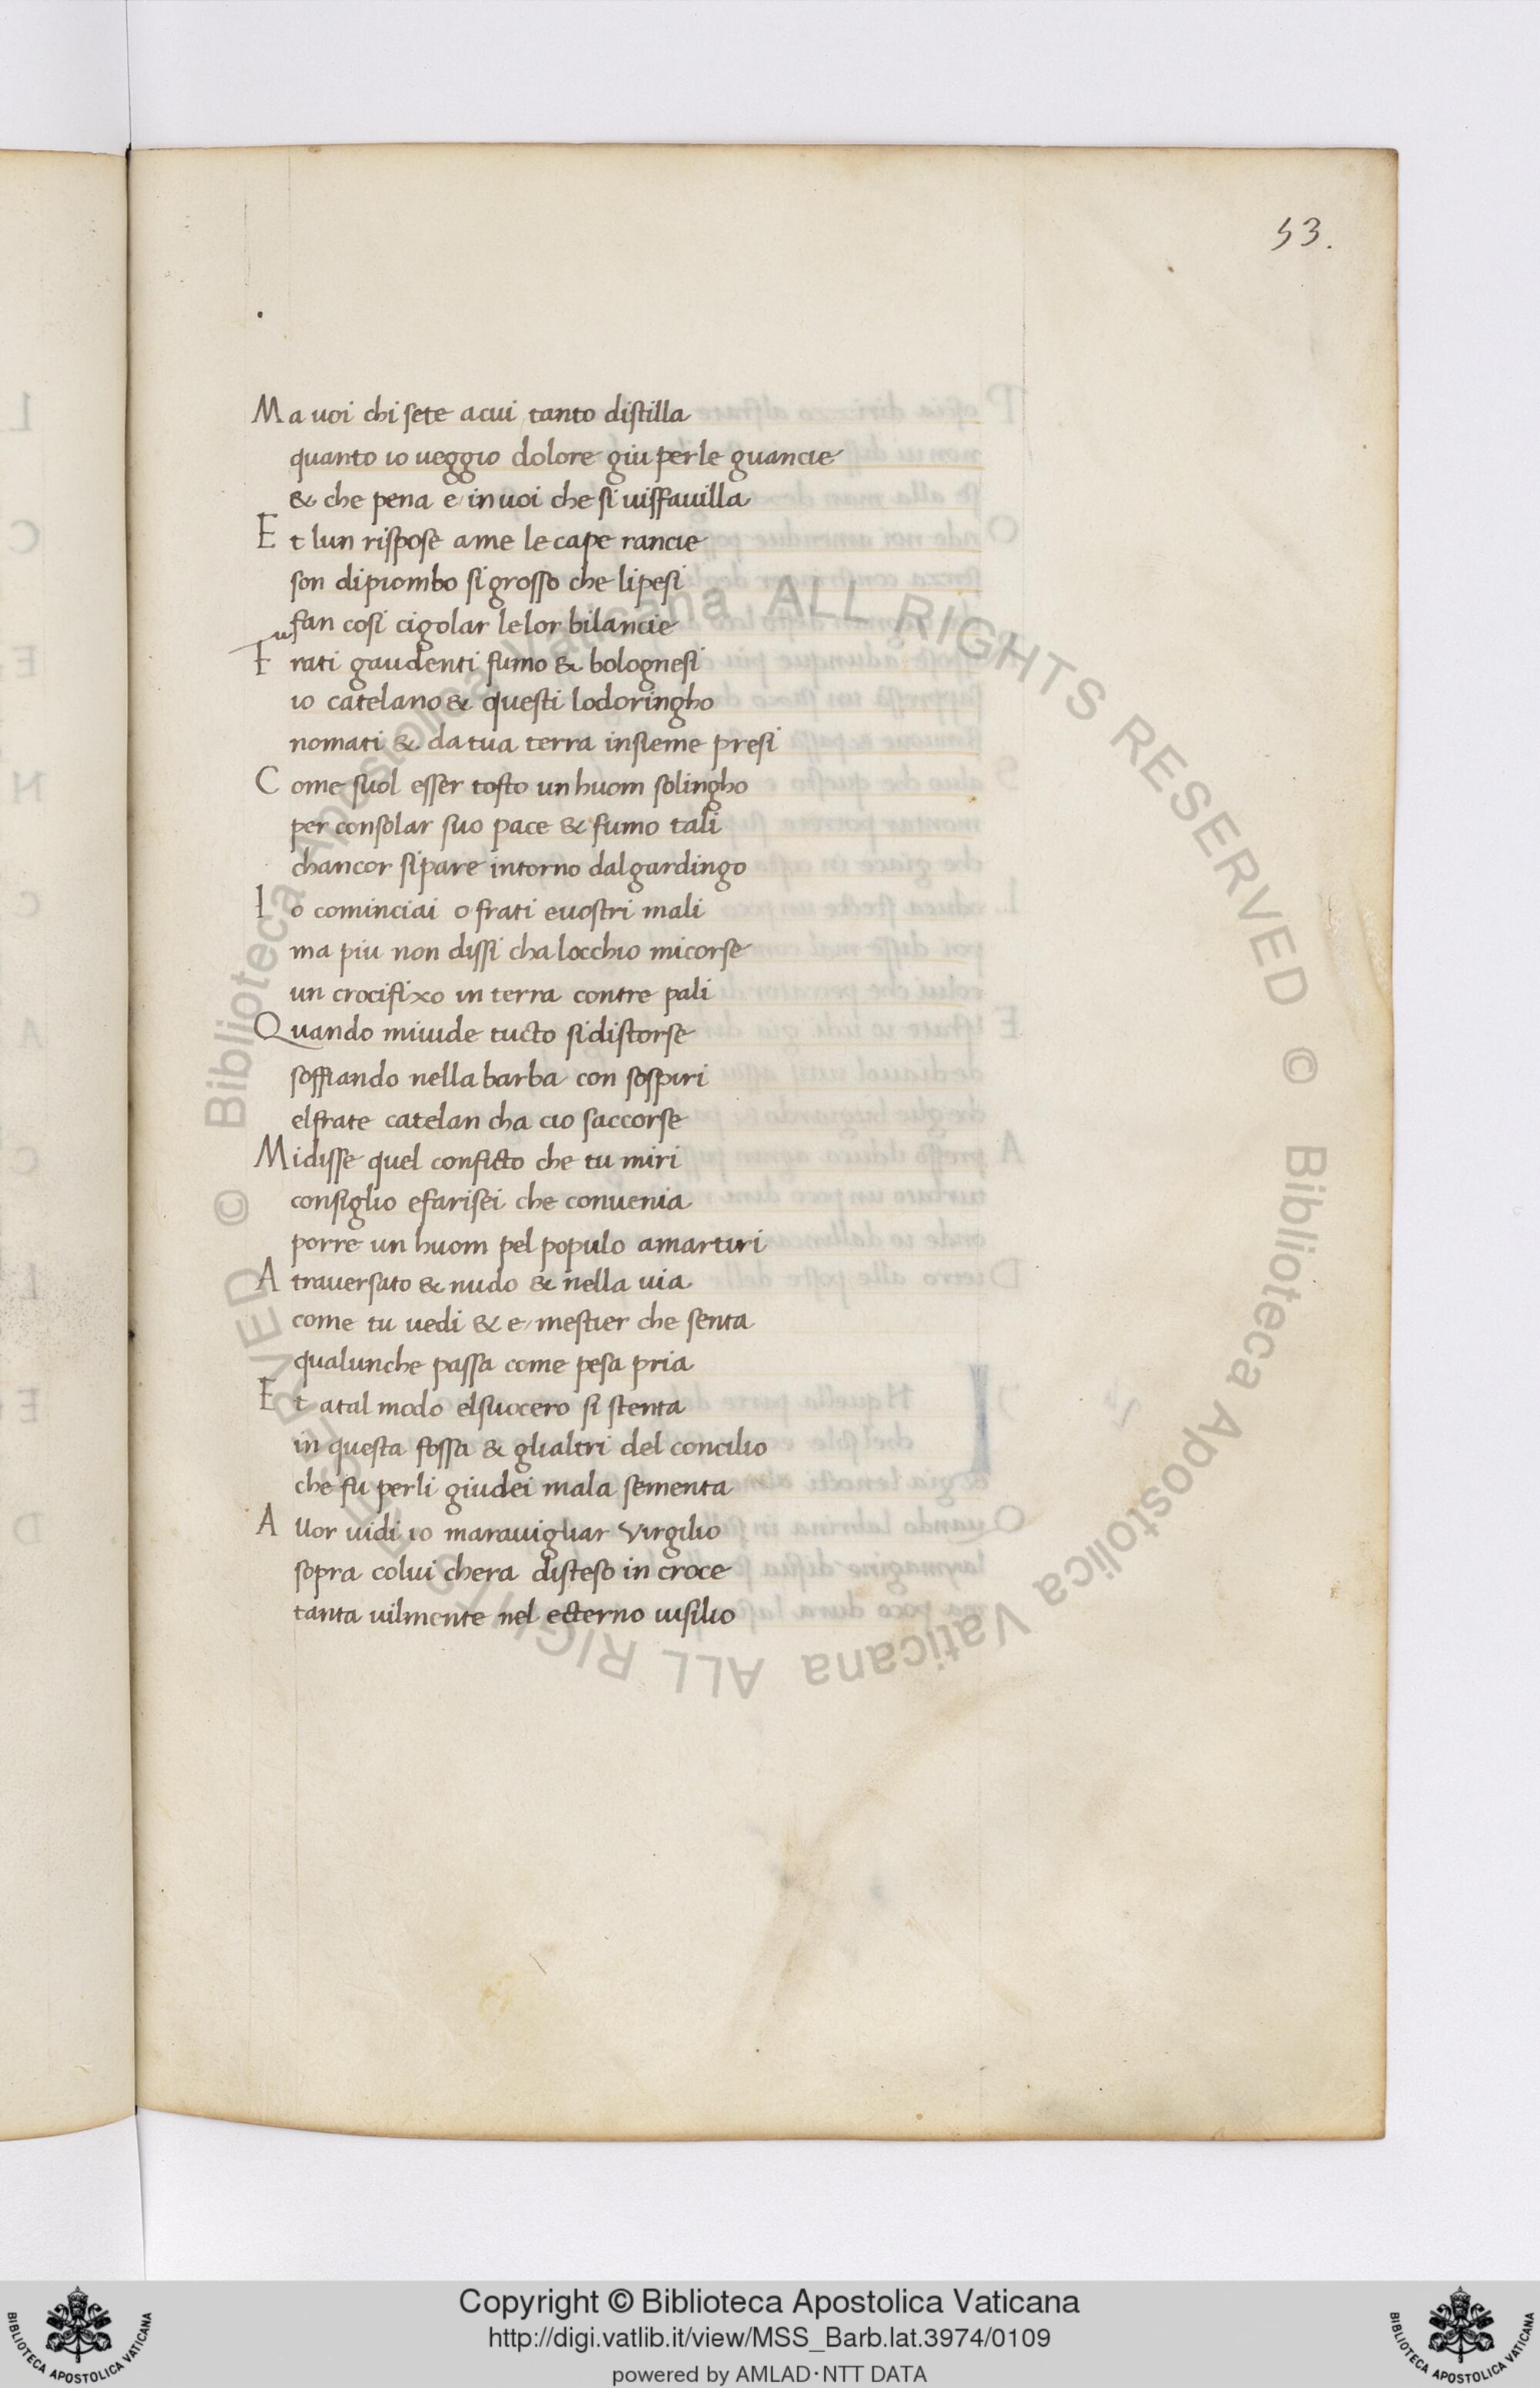 53.
Ma uoi chi sete acui tanto distilla
quanto io ueggio dolore giu perle guancie
& che pena e inuoi che si uissauilla
Et lun rispose ame le cape rancie
son dipiombo si grosso che lipesi
fan cosi cigolar lelor bilancie
Frati gaudenti fumo & bolognesi
io catelano & questi lodoringho
nomati & da tua terra insieme presi
Come suol esser tosto un huom solingho
per consolar suo pace & fumo tali
chancor sipare intorno dalgardingo
Io cominciai o frati euostri mali
ma piu non dissi cha locchio micorse
un crocifixo in terra contre pali
Quando miuide tucto sidistorse
soffiando nella barba con sospiri
elfrate catelan cha cio saccorse
Midisse quel conficto che tu miri
consiglio efarisei che conuenia
porre un huom pel populo amartiri
Atrauersato & nudo & nella uia
come tu uedi & e mestier che senta
qualunche passa come pesa pria
Et atal modo elsuocero si stenta
in questa fossa & glialtri del concilio
che fu perli giudei mala sementa
Allor uidi io marauigliar Virgilio
sopra colui chera disteso in croce
tanta uilmente nel ecterno uisilio
© Biblioteca Apostolica Vaticana ALL RIGHTS RESERVED
© Biblioteca Apostolica Vaticana ALL RIGHTS RESERVED
Copyright © Biblioteca Apostolica Vaticana
http://digi.vatlib.it/view/MSS_Barb.lat.3974/0109
powered by AMLAD·NTT DATA
BIBLIOTECA APOSTOLICA VATICANA
BIBLIOTECA APOSTOLICA VATICANA